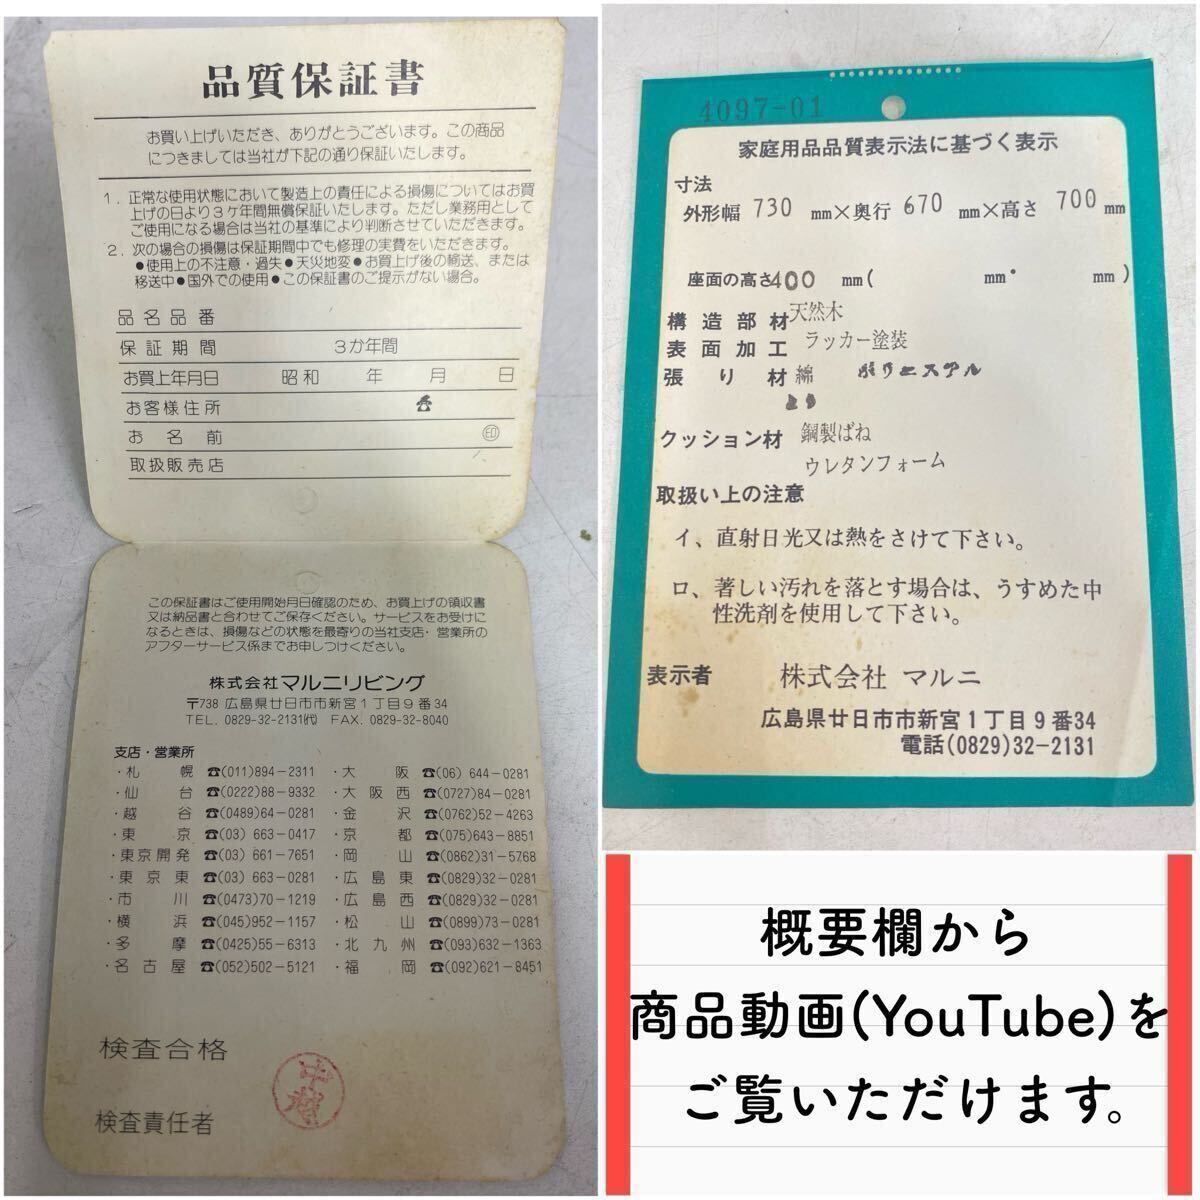 品質保証書
お買い上げいただき、ありがとうございます。この商品
につきましては当社が下記の通り保証いたします。
1. 正常な使用状態において製造上の責任による損傷についてはお買
上げの日より3ヶ年間無償保証いたします。ただし業務用として
ご使用になる場合は当社の基準により判断させていただきます。
2. 次の場合の損傷は保証期間中でも修理の実費をいただきます。
●使用上の不注意・過失●天災地変●お買上げ後の輸送、または
移送中●国外での使用●この保証書のご提示がない場合。
品名品番
保証期間 3か年間
お買上年月日 昭和 年 月 日
お客様住所 ☎
お名前 ㊞
取扱販売店
この保証書はご使用開始月日確認のため、お買上げの領収書
又は納品書と合わせてご保存ください。サービスをお受けに
なるときは、損傷などの状態を最寄りの当社支店・営業所の
アフターサービス係までお申しつけください。
株式会社マルニリビング
〒738 広島県廿日市市新宮1丁目9番34
TEL. 0829-32-2131㈹ FAX. 0829-32-8040
支店・営業所
・札幌 ☎(011)894-2311 ・大阪 ☎(06) 644-0281
・仙台 ☎(0222)88-9332 ・大阪西 ☎(0727)84-0281
・越谷 ☎(0489)64-0281 ・金沢 ☎(0762)52-4263
・東京 ☎(03) 663-0417 ・京都 ☎(075)643-8851
・東京開発 ☎(03) 661-7651 ・岡山 ☎(0862)31-5768
・東京東 ☎(03) 663-0281 ・広島東 ☎(0829)32-0281
・市川 ☎(0473)70-1219 ・広島西 ☎(0829)32-0281
・横浜 ☎(045)952-1157 ・松山 ☎(0899)73-0281
・多摩 ☎(0425)55-6313 ・北九州 ☎(093)632-1363
・名古屋 ☎(052)502-5121 ・福岡 ☎(092)621-8451
検査合格
検査責任者
4097-01
家庭用品品質表示法に基づく表示
寸法
外形幅 730 mm×奥行 670 mm×高さ 700 mm
座面の高さ400 mm( mm・ mm)
構造部材 天然木
表面加工 ラッカー塗装
張り材 綿 ポリエステル
クッション材 鋼製ばね
ウレタンフォーム
取扱い上の注意
イ、直射日光又は熱をさけて下さい。
ロ、著しい汚れを落とす場合は、うすめた中
性洗剤を使用して下さい。
表示者 株式会社 マルニ
広島県廿日市市新宮1丁目9番34
電話(0829)32-2131
概要欄から
商品動画(YouTube)を
ご覧いただけます。